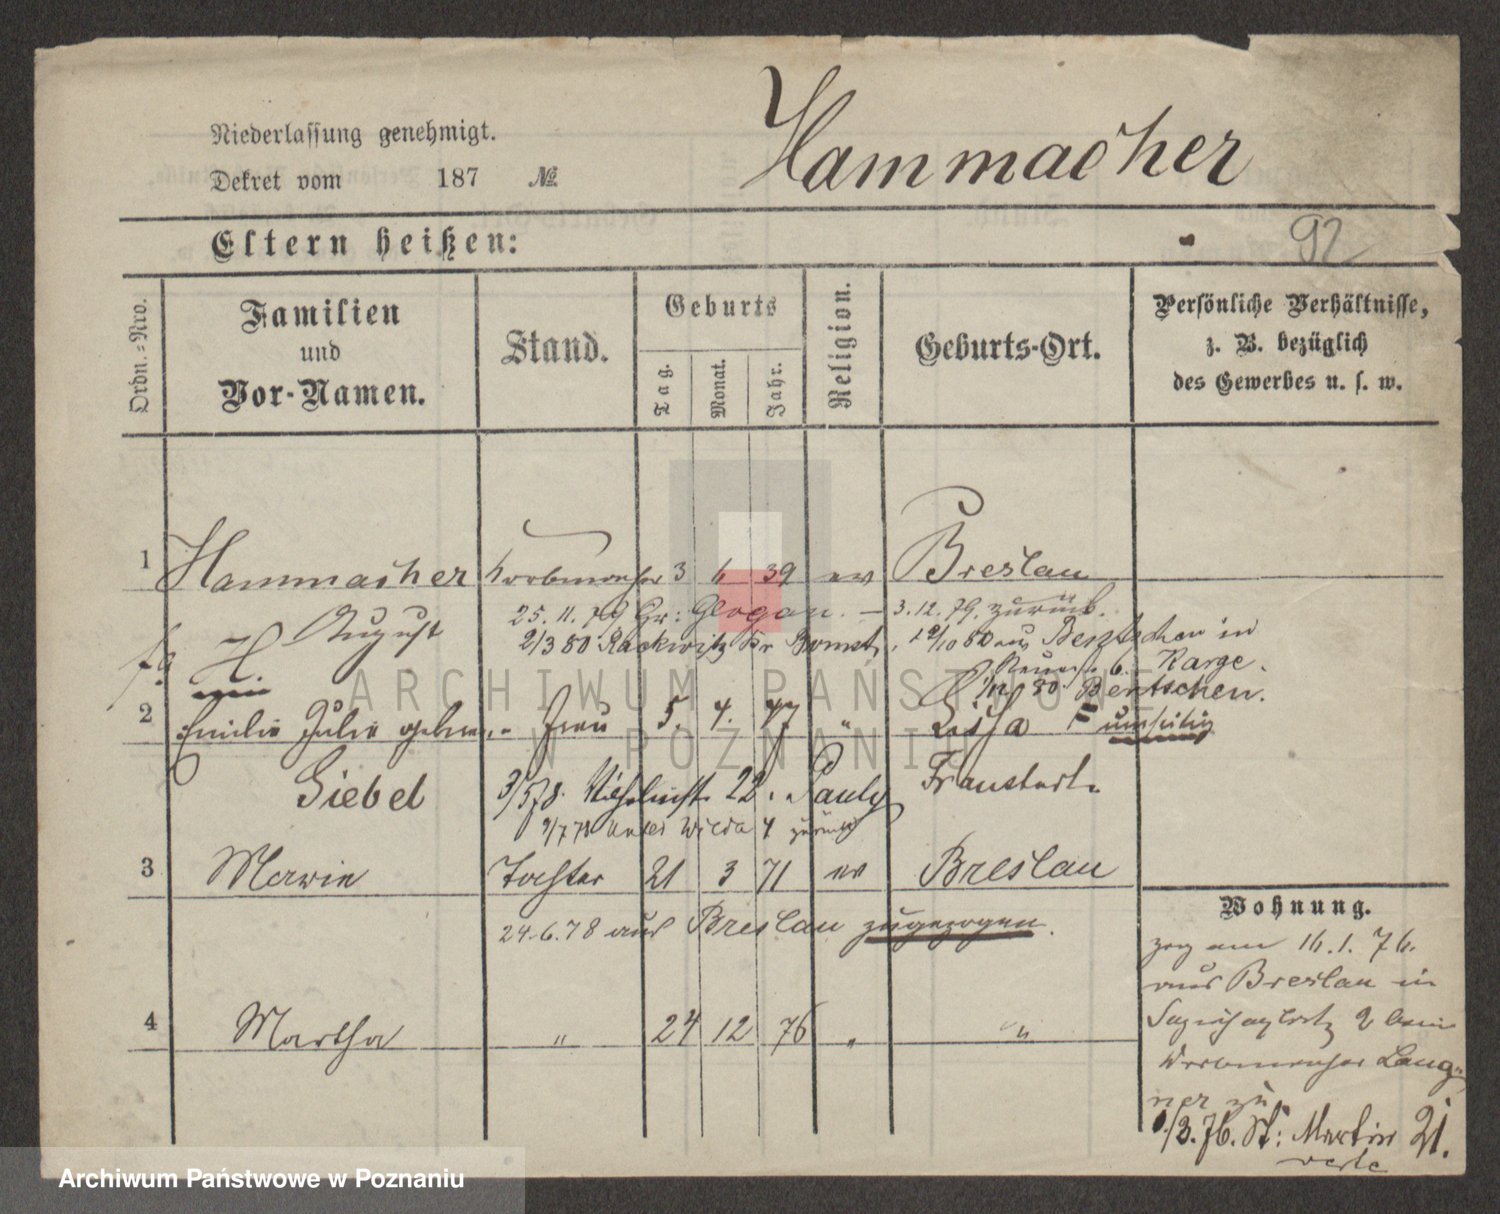 Niederlassung genehmigt.
Dekret vom 187 №
Hammacher
Eltern heißen:
92
Ordn.-Nro.
Familien
und
Vor-Namen.
Stand.
Geburts
Tag.
Monat.
Jahr.
Religion.
Geburts-Ort.
Persönliche Verhältnisse,
z. B. bezüglich
des Gewerbes u. s. w.
1 Hammacher Korbmacher 3 6 39 ev Breslau
August
25.11.79 Gr: Glogau. — 3.12.79. zurück.
2/3 80 Rackwitz Kr Bomst, 12/10 80 aus Bentschen in
Karge.
80 Bentschen.
2 Emilie Julie geborne Frau 5. 4. 47 " Lissa umseitig
Giebel
Fraustadt.
3/5 78. Wilhelmst. 22. Pauly
9/7 78 Unter Wilda 4 zurück
3 Marie Tochter 21 3 71 ev Breslau
24.6.78 aus Breslau zugezogen.
4 Martha " 24 12 76 " "
Wohnung.
zog am 16.1.76.
aus Breslau in
Sapiehaplatz 2 beim
Korbmacher Lang-
ner zu
1/3.76. St: Martin 21.
verte
ARCHIWUM PAŃSTWOWE
W POZNANIU
Archiwum Państwowe w Poznaniu